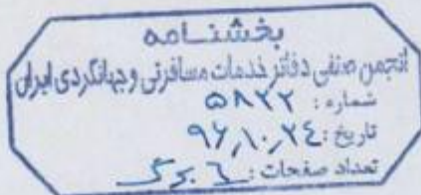 بخشنامه
انجمن صنفی دفاتر خدمات مسافرتی و جهانگردی ایران
شماره : ۵۸۲۲
تاریخ : ۹۶,۱۰,۲۴
تعداد صفحات : ۶ برگ